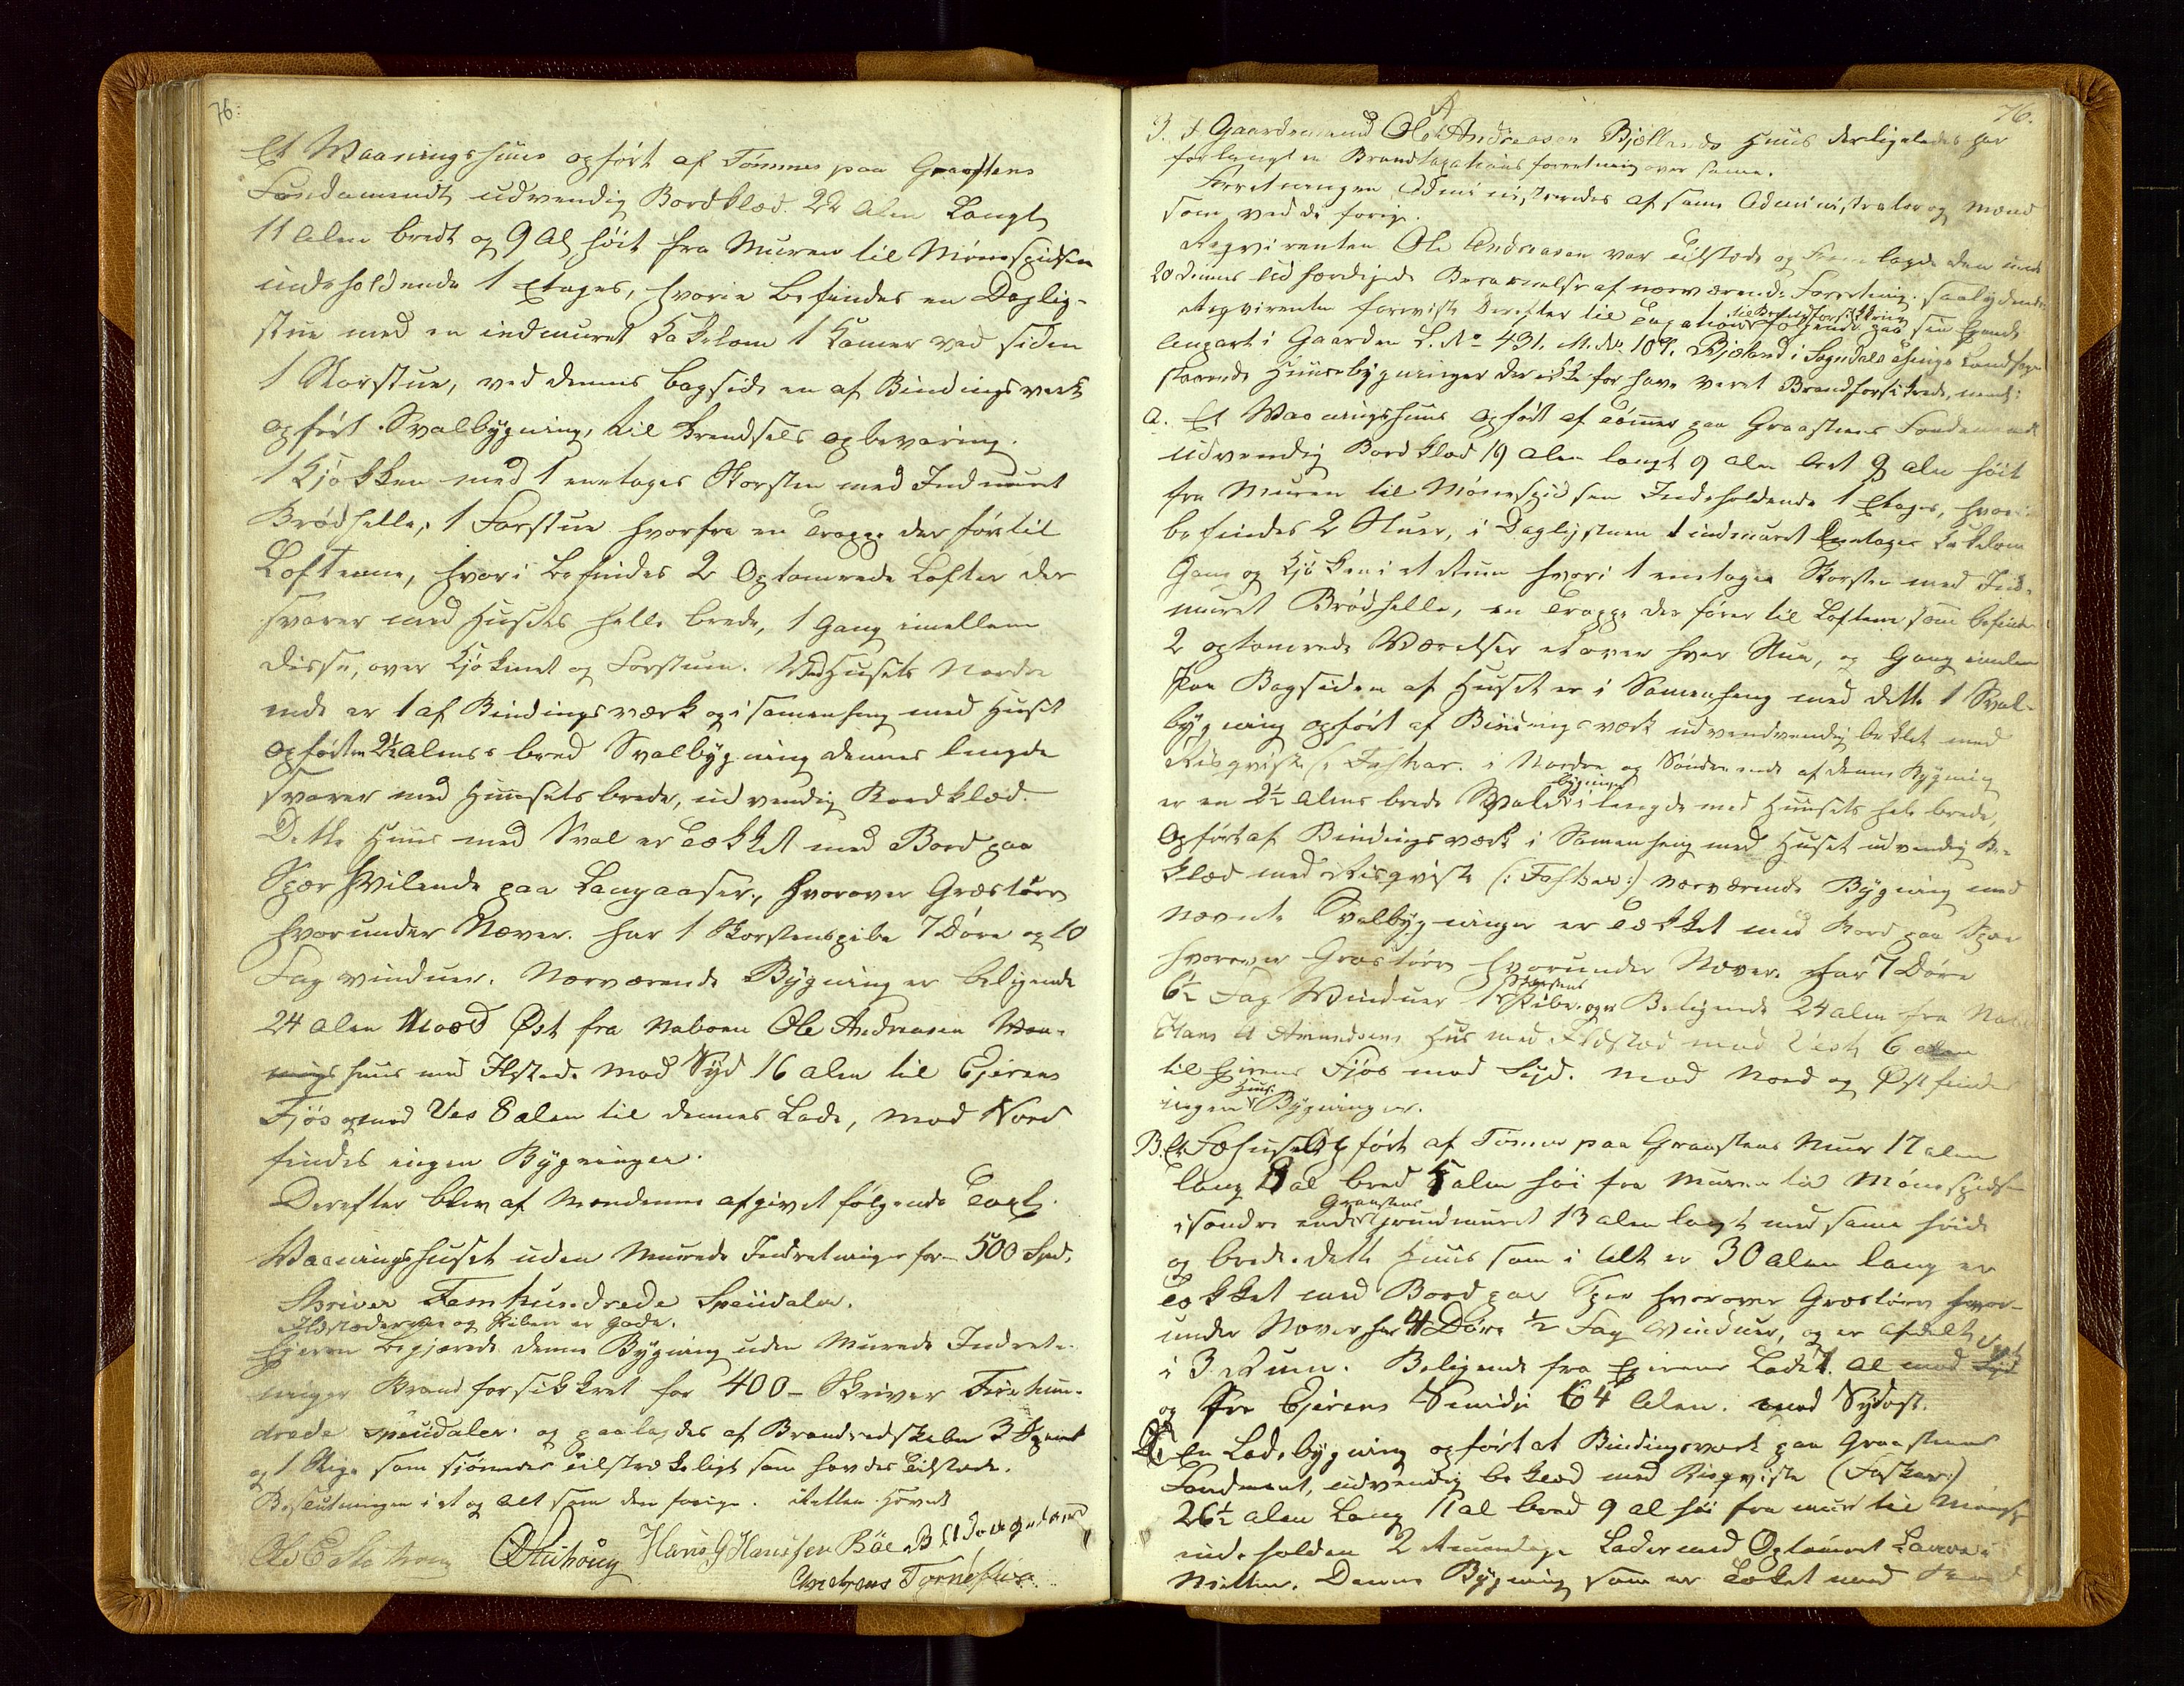 76.
Et Vaaningshuus opført af Tømmer paa Graasteens
Fundamendt, udvendig Bordklæd. 22 Alen Langt
11 Alen bredt og 9 Al høit fra Muren til Mønespidsen
indeholdende 1 Etages, hvorie befindes en Daglig-
stue med en indmuret Kakelom 1 Kamer ved siden
1 Storstue, ved dennes bagside en af Bindingsverk
opført Svalbygning, til Brendsels opbevaring.
1 Kjøkken med 1 enetages Skorsten med Indmuret
Brødhelle, 1 Forstue hvorfra en Trappe der fører til
Lofterne, hvori befindes 2 Optømrede Lofter der
svarer med Husets halle brede, 1 Gang imellem
disse, over Kjøkenet og Forstuen. Ved Husets Nordre
ende er 1 af Bindingsværk og i samenheng med Huset
opførtn 2½ Alens bred Svalbygning dennes lengde
svarer med Huusets brede, udvendig Bordklæd.
Dette Huus med Sval er Tækket med Bord paa
Spær Hvilende paa Langaaser, hvorover Græstørv
hvorunder Næver. har 1 Skorstenspibe 7 Døre og 10
Fag vinduer. Nærværende Bygning er beligende
24 Alen Mod Øst fra Naboen Ole Andreasen Vaa-
nings huus med Ilsted. Mod Syd 16 Alen til Ejerens
Fjøs og mod Ves 8 alen til dennes Lade, mod Nord
findes ingen Bygninger.
Derefter blev af Mændene afgivet følgende Taxt.
Vaaningshuset uden Murede Indretninger for 500 Spd.
Skriver Femhundrede Speeidaler.
Ildstæderne og Piben er gode.
Ejeren begjærede denne Bygning uden Murede Indret-
ninger Brandforsikkret for 400 - Skriver Firehun-
drede speeidaler. og paalagdes af Brandredskaber 3 Spand
og 1 Stige som skjønnedes tilstrækkeligt som havdes tilstæde.
Beslutningen i et og alt som den forige. Retten Hævet
Hans G Hanssen Bøe
76.
3. I Gaardmand Ole Andreasen Bjellands Huus derligeledes har
forlangt en Brandtaxations forretning over samme.
Forretningen Administreredes af samme Administrator og mænd
som ved de forige.
Reqvirenten Ole Andreasen var tilstæde og fremlagde den under
20 dennes udfærdigede Berammelse af nærværende Forretning. saalydende
til Brandforsikkring
Reqvirenten foreviste derefter til Taxation følgende paa sin Ejende
lenpart i Gaarden L. No 431. M. No 109. Bjeland i Sogndals Thinge Landsogn
staaende Huusebygninger der ikke før have veret Brandforsikrede, nemlig:
a. Et Vaaningshuus opført af Tømer paa Graasteens Fondament
udvendig Bordklæd 19 Alen langt 9 Alen bret 9 Alen høit
fra Muren til Mønespidsen Indeholdende 1 Etages, hvori
befindes 2 Stuer, i Dagligstuen 1 indmuret Enetages Kakelom
Gang og Kjøken i et Rum hvori 1 enetages Skorsten med Ind-
muret Brødhelle, en Trappe der fører til Lofterne som befindes
2 optømrede Værelser et over hver Stue, og Gang imelem
Paa Bagsiden af Huset er i Samenheng med dette 1 Sval-
bygning opført af Bindingsværk udvendvendig beklet med
Risqviste (: Faskar. i Nordre og Søndre ende af denne Bygning
bygning
er en 2½ Alens brede Sval i lengde med Huusets hele brede,
Opført af Bindingsværk i Samenheng med Huset udvendig Be-
klæd med Risqviste (: Faskar:) Nærværende Bygning med
nævnte Svalbygninger er Tækket med Bord paa Spær
hvorover Græstørv hvorunder Næver. Har 7 Døre
Skorstens
6½ Fag Vinduer 1 Pibe. og er Beligende 24 alen fra Nabo
Hans A Amundsens Hus med Ildsted mod Vest, 6 alen
til Ejerens Fjøs mod Syd. Mod Nord og Øst findes
Huus
ingen Bygninger.
B. Et Fæhus Opført af Tømer paa Graasteens Muur 17 alen
lang 9 al bred 5 alen høi fra Muren til Mønespidsen
Graasteens
i søndre ende Grundmuret 13 alen langt med samme høide
og brede. dette Huus som i alt er 30 alen lang er
Tækket med Bord paa Spær hvorover Græstørv hvor-
under Næver har 4 Døre ½ Fag vinduer, og er afdelt
i 3 Rum. Beligende fra Ejerens Lade 7. al mod
og fra Ejerens Smidje 64 Alen. mod Sydost.
En Ladebygning opført at Bindingsverk paa Graasteens
Fondment, udvendig beklæd med Risqviste (Faskar:)
26½ alen lang 11 al bred 9 al høi fra mur til Mønesp
indeholden 2 Lader med Optømret Laave i
Midten. Denne Bygning som er Tæket med